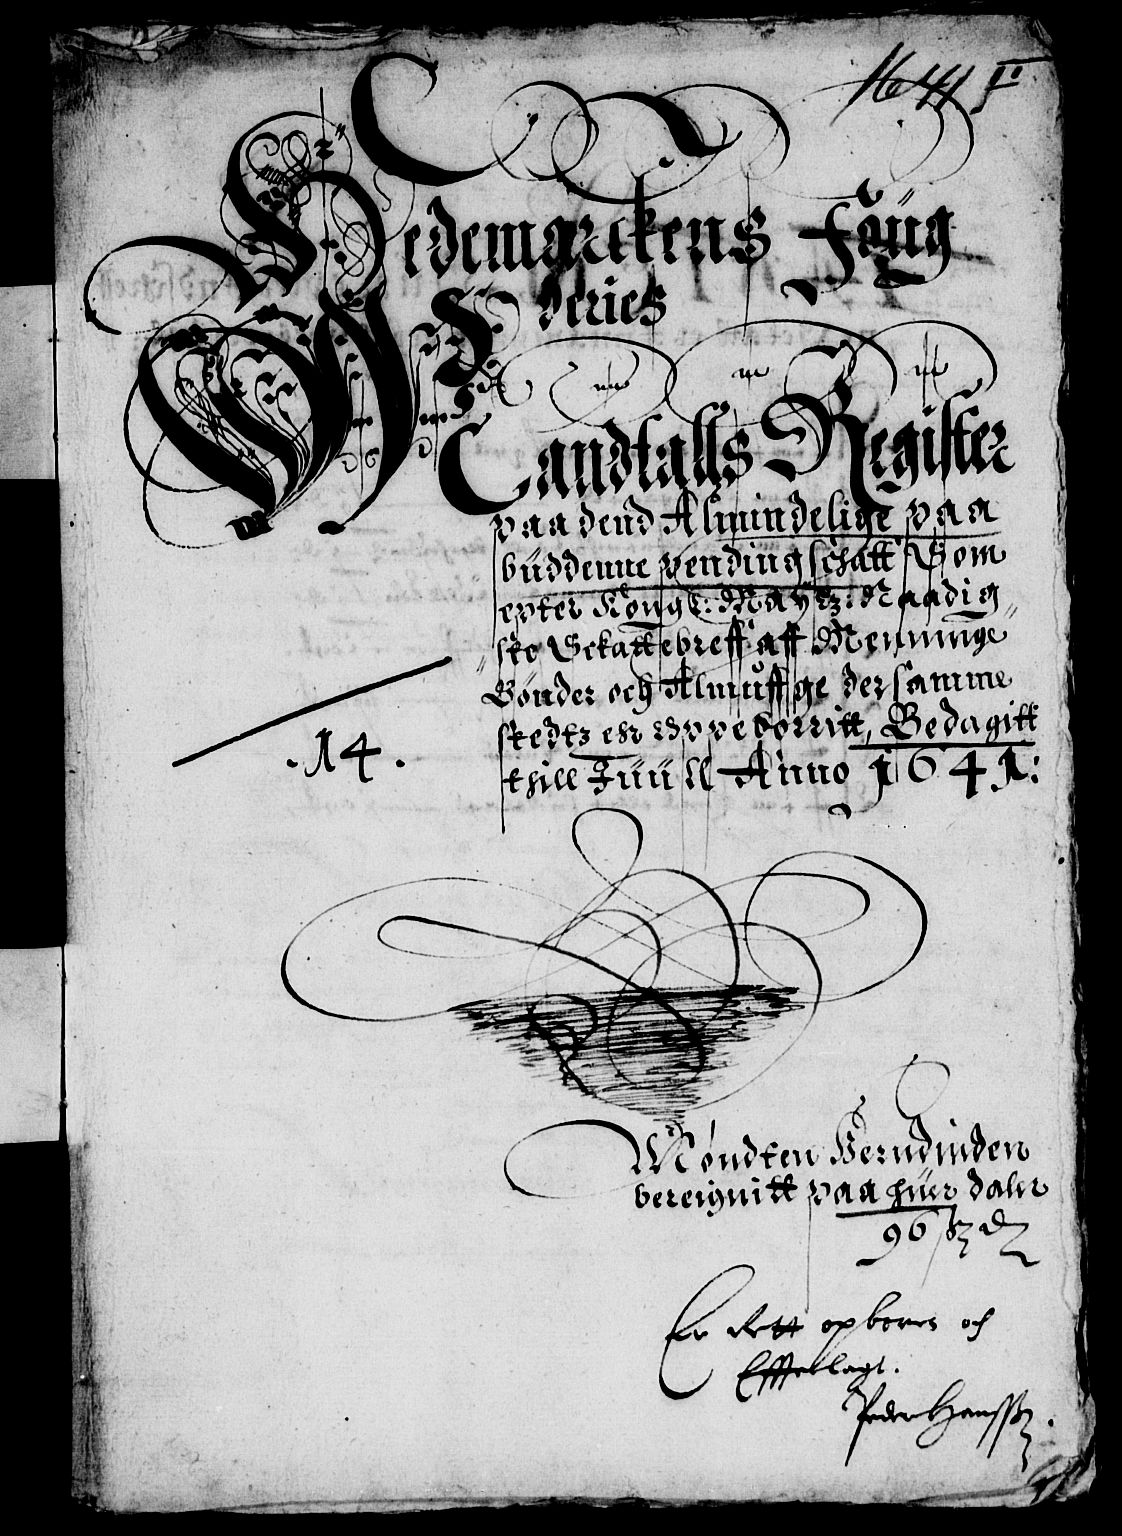 1641 F
Hedemarckens Foug
deries
Landtalls Register
paa dend Almindelige paa
büddenne pending schatt Som
epter Kongl: Maytz: Naadig
ske Sckattebreff aff Menninge
Bønder och Almuffge der samme
stedtz ehr oppeborritt, Bedagitt
thill Juü ll Anno 1641:
. 14 .
Møndten Herudinden
bereignitt paa huer daler
96 ß d
Er Rett opborit och
Efftterlagt.
Peder Hanssø